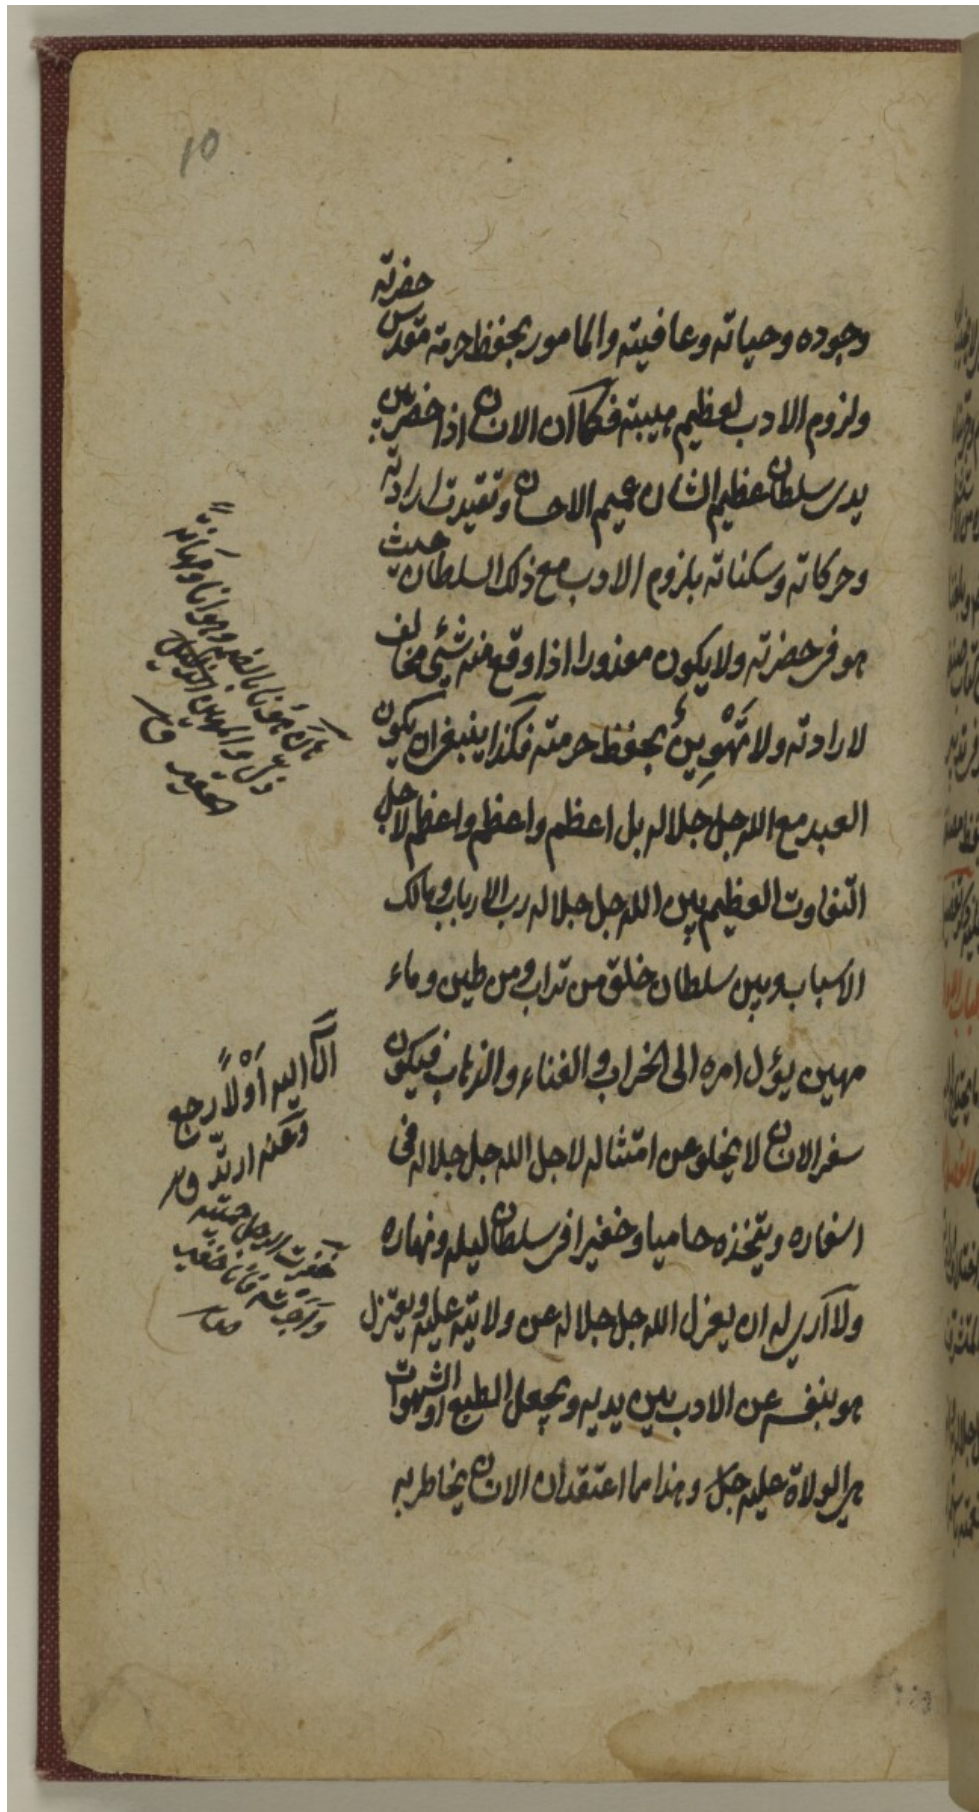 10
وجوده وحياته وعافيته والمامور بحفظ حرمة مقدس حضرته
ولزوم الادب لعظيم هيبته فكما ان الانسان اذا حضر بين
يدى سلطان عظيم الشان عميم الاحسان وتقيدت ارادته
وحركاته وسكناته بلزوم الادب مع ذلك السلطان حيث
هو فى حضرته ولا يكون معذورا اذا وقع منه شيئ مخالف
لارادته ولا تَهْوِينٌ بحفظ حرمته فكذا ينبغى ان يكون
العبد مع الله جل جلاله بل اعظم واعظم واعظم لاجل
التفاوت العظيم بين الله جل جلاله رب الارباب ومالك
الاسباب وبين سلطان خلق من تراب ومن طين وماء
مهين يؤل امره الى الخراب والفناء والذهاب فيكون
سفر الانسان لا يخلو عن امتثاله لاجل الله جل جلاله فى
اسفاره ويتخذه حاميا وخفيرا فى سلطان ليله ونهاره
ولا أرى له ان يعزل الله جل جلاله عن ولايته عليه ويعتزل
هو بنفسه عن الادب بين يديه ويجعل الطبع او الشهوات
هى الولاة عليه جل وهذا مما اعتقد ان الانسان يخاطر به
هان هونا بالضم وهوانا ومهانة
ذل والمهين الذليل
الحقير ق
آل اليه اَوْلاً رجع
وعنه ارتدّ ق
خفرت الرجل حميته
واجرته فانا خفير